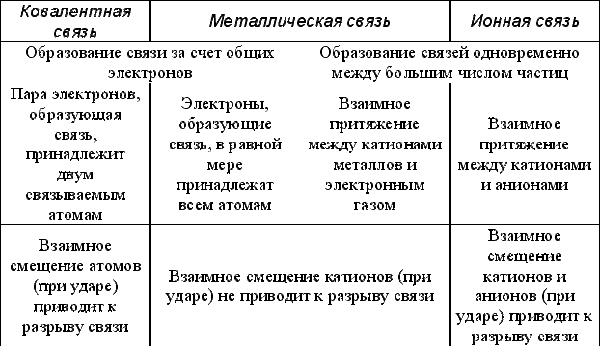 Ковалентная
связь
Металлическая связь
Ионная связь
Образование связи за счет общих
электронов
Образование связей одновременно
между большим числом частиц
Пара электронов,
образующая
связь,
принадлежит
двум
связываемым
атомам
Электроны,
образующие
связь, в равной
мере
принадлежат
всем атомам
Взаимное
притяжение
между катионами
металлов и
электронным
газом
Взаимное
притяжение
между катионами
и анионами
Взаимное
смещение атомов
(при ударе)
приводит к
разрыву связи
Взаимное смещение катионов (при
ударе) не приводит к разрыву связи
Взаимное
смещение
катионов и
анионов (при
ударе) приводит к
разрыву связи